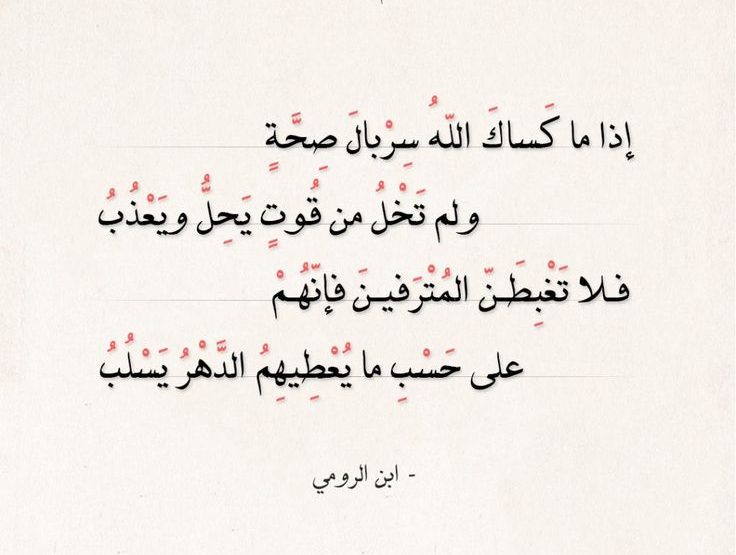 إذا ما كَساكَ اللّهُ سِرْبالَ صِحَّةٍ
ولم تَخْلُ من قُوتٍ يَحِلُّ ويَعْذُبُ
فلا تَغْبِطَنّ المُتْرَفينَ فإنّهُمْ
على حَسْبِ ما يُعْطِيهِمُ الدَّهْرُ يَسْلُبُ
- ابن الرومي